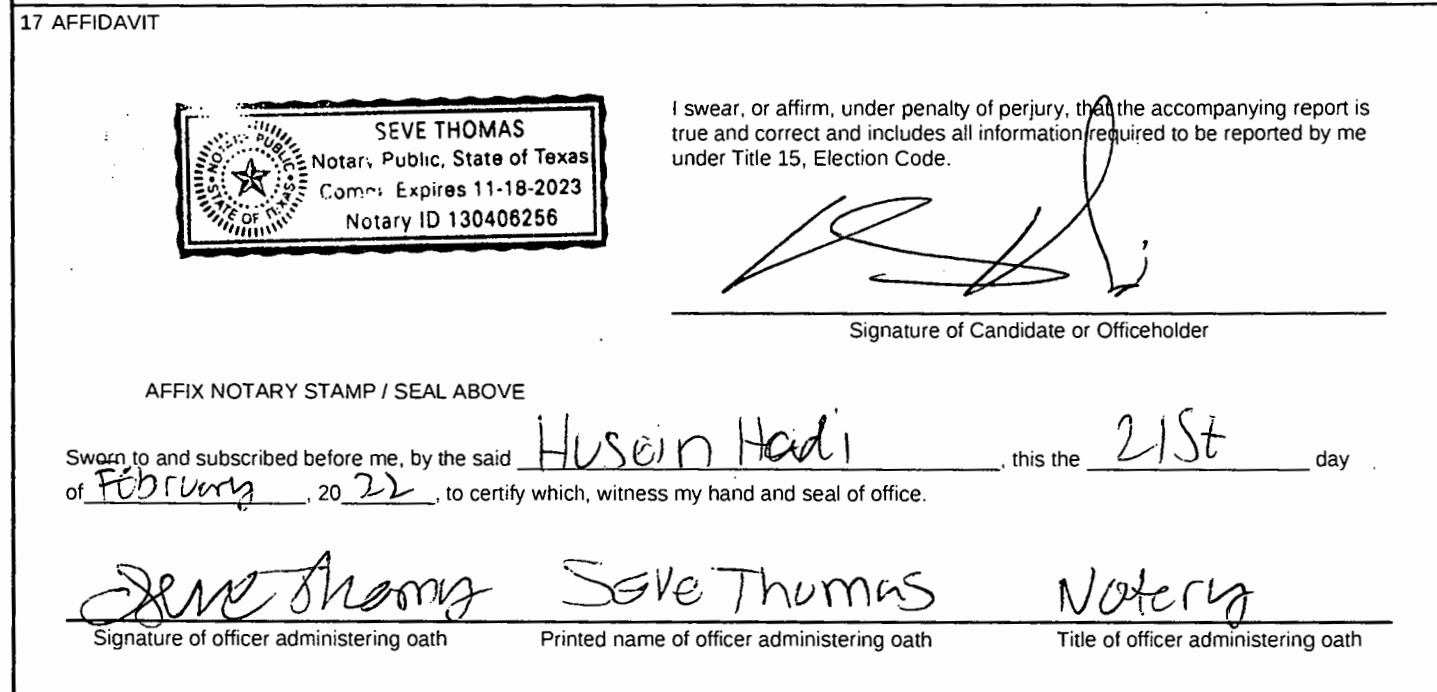 17 AFFIDAVIT
NOTARY PUBLIC
STATE OF TEXAS
SEVE THOMAS
Notary Public, State of Texas
Comm. Expires 11-18-2023
Notary ID 130406256
I swear, or affirm, under penalty of perjury, that the accompanying report is
true and correct and includes all information required to be reported by me
under Title 15, Election Code.
Signature of Candidate or Officeholder
AFFIX NOTARY STAMP / SEAL ABOVE
Sworn to and subscribed before me, by the said Husein Hadi, this the 21st day
of February, 2022, to certify which, witness my hand and seal of office.
Seve Thomas Seve Thomas Notery
Signature of officer administering oath Printed name of officer administering oath Title of officer administering oath